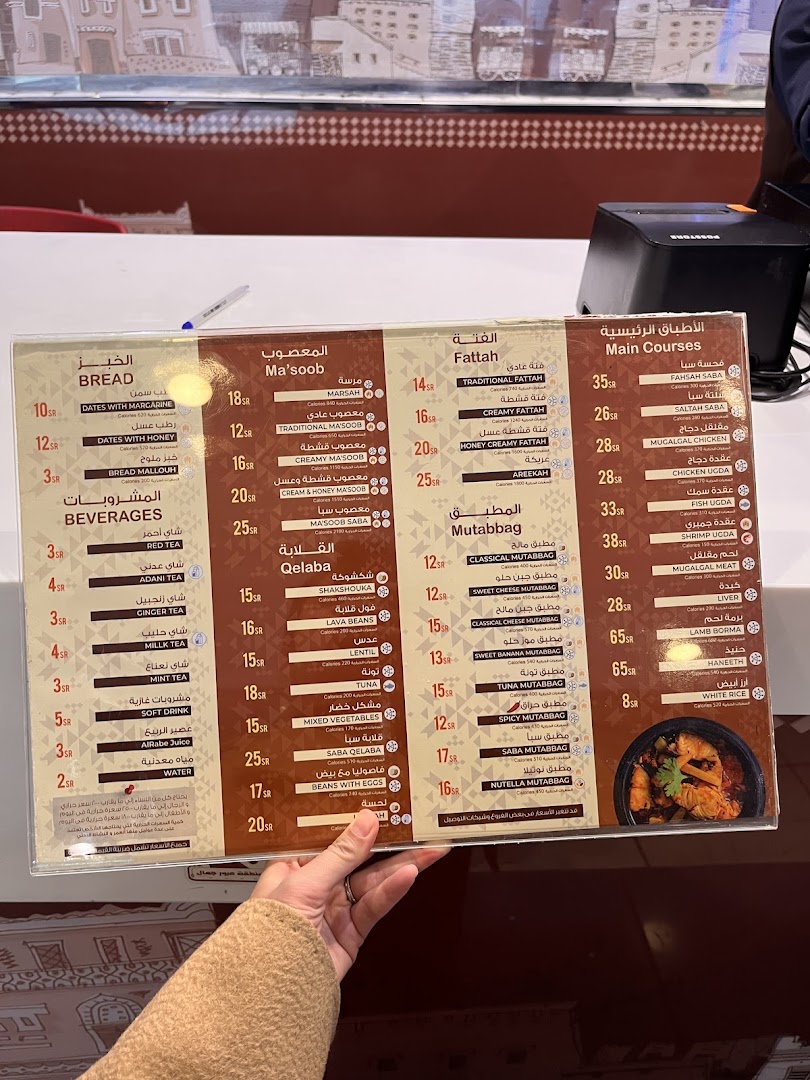 POSSTORE
الخبز
BREAD
10SR
DATES WITH MARGARINE
Calories 620
رطب عسل
12SR
DATES WITH HONEY
Calories 520
خبز ملوح
3SR
BREAD MALLOUH
Calories 300
المشروبات
BEVERAGES
شاي أحمر
3SR
RED TEA
شاي عدني
4SR
ADANI TEA
شاي زنجبيل
3SR
GINGER TEA
شاي حليب
4SR
MILLK TEA
شاي نعناع
3SR
MINT TEA
مشروبات غازية
5SR
SOFT DRINK
عصير الربيع
3SR
AlRabe Juice
مياه معدنية
2SR
WATER
المعصوب
Ma'soob
مرسة
18SR
MARSAH
Calories 840
معصوب عادي
12SR
TRADITIONAL MA'SOOB
Calories 650
معصوب قشطة
16SR
CREAMY MA'SOOB
Calories 1150
معصوب قشطة وعسل
20SR
CREAM & HONEY MA'SOOB
Calories 1550
معصوب سبا
25SR
MA'SOOB SABA
Calories 2190
القلابة
Qelaba
شكشوكة
15SR
SHAKSHOUKA
Calories 460
فول قلابة
16SR
LAVA BEANS
Calories 280
عدس
15SR
LENTIL
Calories 220
تونة
18SR
TUNA
Calories 200
مشكل خضار
15SR
MIXED VEGETABLES
Calories 170
قلابة سبأ
25SR
SABA QELABA
Calories 590
فاصوليا مع بيض
17SR
BEANS WITH EGGS
Calories 740
لحسة
20SR
الفتة
Fattah
فتة عادي
14SR
TRADITIONAL FATTAH
Calories 740
فتة قشطة
16SR
CREAMY FATTAH
Calories 1240
فتة قشطة عسل
20SR
HONEY CREAMY FATTAH
Calories 1600
عريكة
25SR
AREEKAH
Calories 1800
المطبق
Mutabbag
مطبق مالح
12SR
CLASSICAL MUTABBAG
Calories 400
مطبق جبن حلو
12SR
SWEET CHEESE MUTABBAG
Calories 450
مطبق جبن مالح
15SR
CLASSICAL CHEESE MUTABBAG
Calories 570
مطبق موز حلو
13SR
SWEET BANANA MUTABBAG
Calories 540
مطبق تونة
15SR
TUNA MUTABBAG
مطبق حراق
12SR
SPICY MUTABBAG
Calories 430
مطبق سبأ
17SR
SABA MUTABBAG
Calories 510
مطبق نوتيلا
16SR
NUTELLA MUTABBAG
Calories 450
قد تتغير الأسعار في بعض الفروع وشبكات التوصيل
الأطباق الرئيسية
Main Courses
فحسة سبأ
35SR
FAHSAH SABA
Calories 300
سلتة سبأ
26SR
SALTAH SABA
Calories 280
مقلقل دجاج
28SR
MUGALGAL CHICKEN
Calories 370
عقدة دجاج
28SR
CHICKEN UGDA
Calories 370
عقدة سمك
33SR
FISH UGDA
Calories 310
عقدة جمبري
38SR
SHRIMP UGDA
Calories 150
لحم مقلقل
30SR
MUGALGAL MEAT
Calories 300
كبدة
28SR
LIVER
Calories 290
برمة لحم
65SR
LAMB BORMA
حنيذ
65SR
HANEETH
Calories 540
أرز أبيض
8SR
WHITE RICE
Calories 520